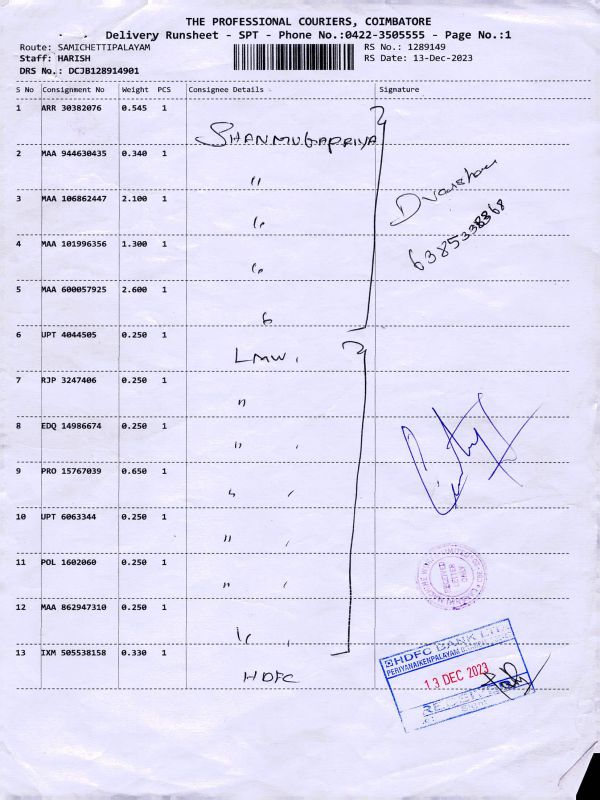 THE PROFESSIONAL COURIERS, COIMBATORE
Delivery Runsheet - SPT - Phone No.:0422-3505555 - Page No.:1
Route: SAMICHETTIPALAYAM RS No.: 1289149
Staff: HARISH RS Date: 13-Dec-2023
DRS No.: DCJB128914901
S No Consignment No Weight PCS Consignee Details Signature
1 ARR 30382076 0.545 1
SHANMUGAPRIYA
2 MAA 944630435 0.340 1
"
3 MAA 106862447 2.100 1
"
4 MAA 101996356 1.300 1
"
5 MAA 600057925 2.600 1
6385338368
6 UPT 4044505 0.250 1
LMW.
7 RJP 3247406 0.250 1
"
8 EDQ 14986674 0.250 1
" ,
9 PRO 15767039 0.650 1
" ,
10 UPT 6063344 0.250 1
" ,
11 POL 1602060 0.250 1
" ,
12 MAA 862947310 0.250 1
" ,
13 IXM 505538158 0.330 1
HDFC
HDFC BANK LTD
PERIYANAIKENPALAYAM
13 DEC 2023